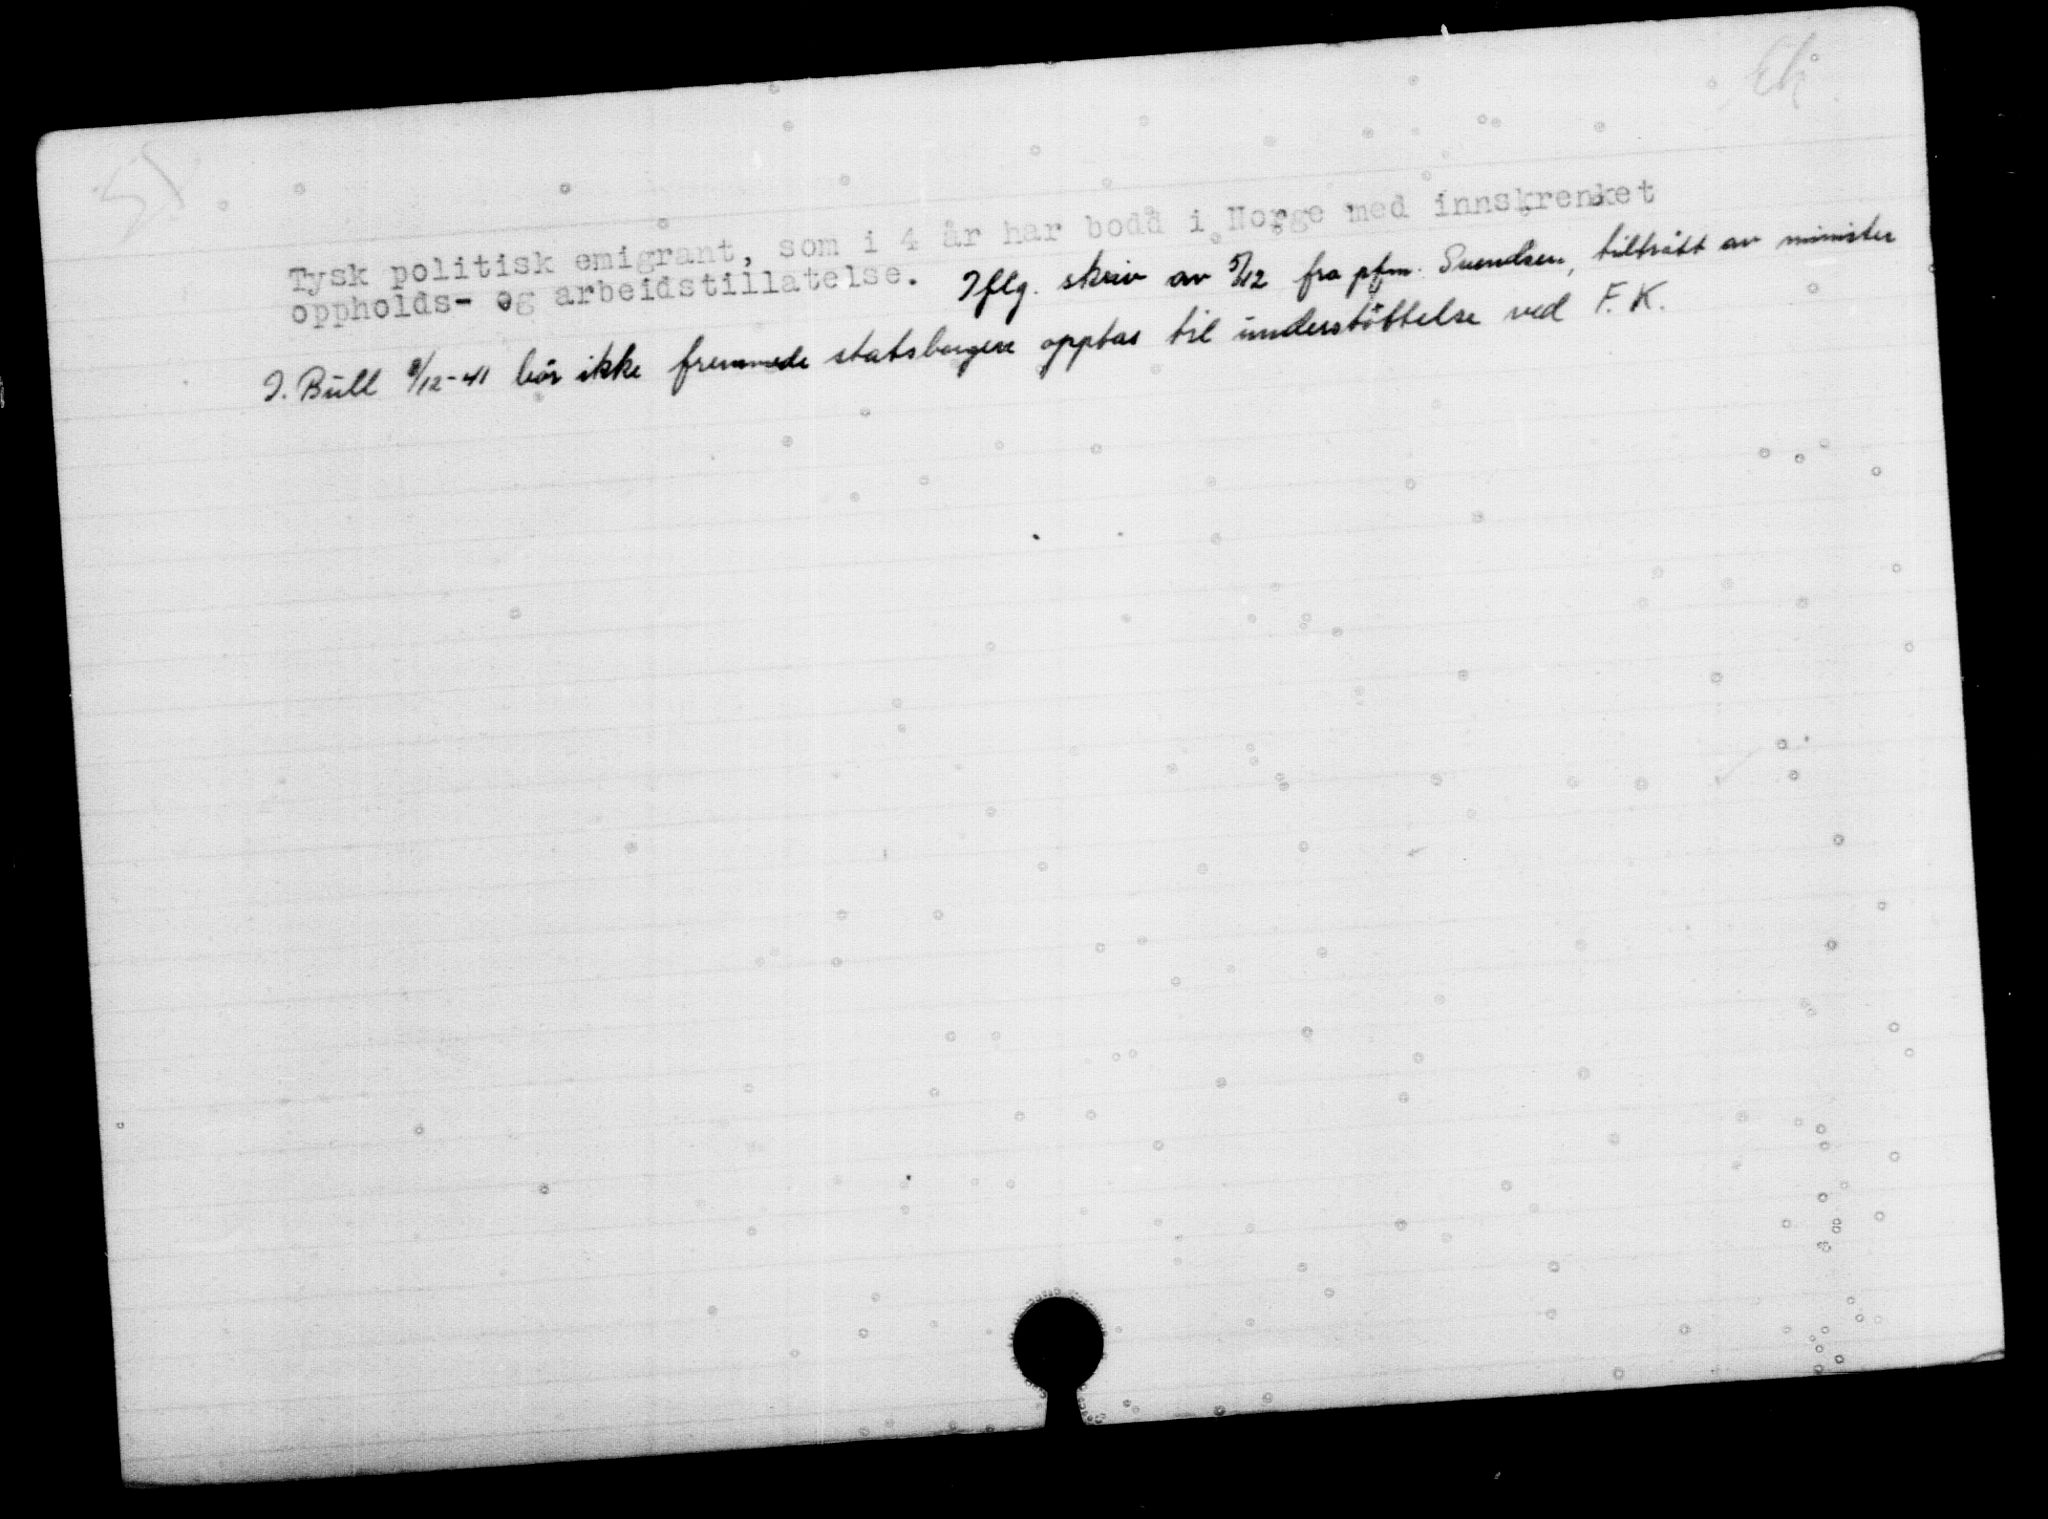 Tysk politisk emigrant, som i 4 år har bodd i Norge med innskrenket
oppholds- og arbeidstillatelse. Iflg. skriv av 5/12 fra pfm. Svendsen, tiltrått av minister
J. Bull 8/12-41 bör ikke fremmede statsborgere opptas til understöttelse ved F. K.